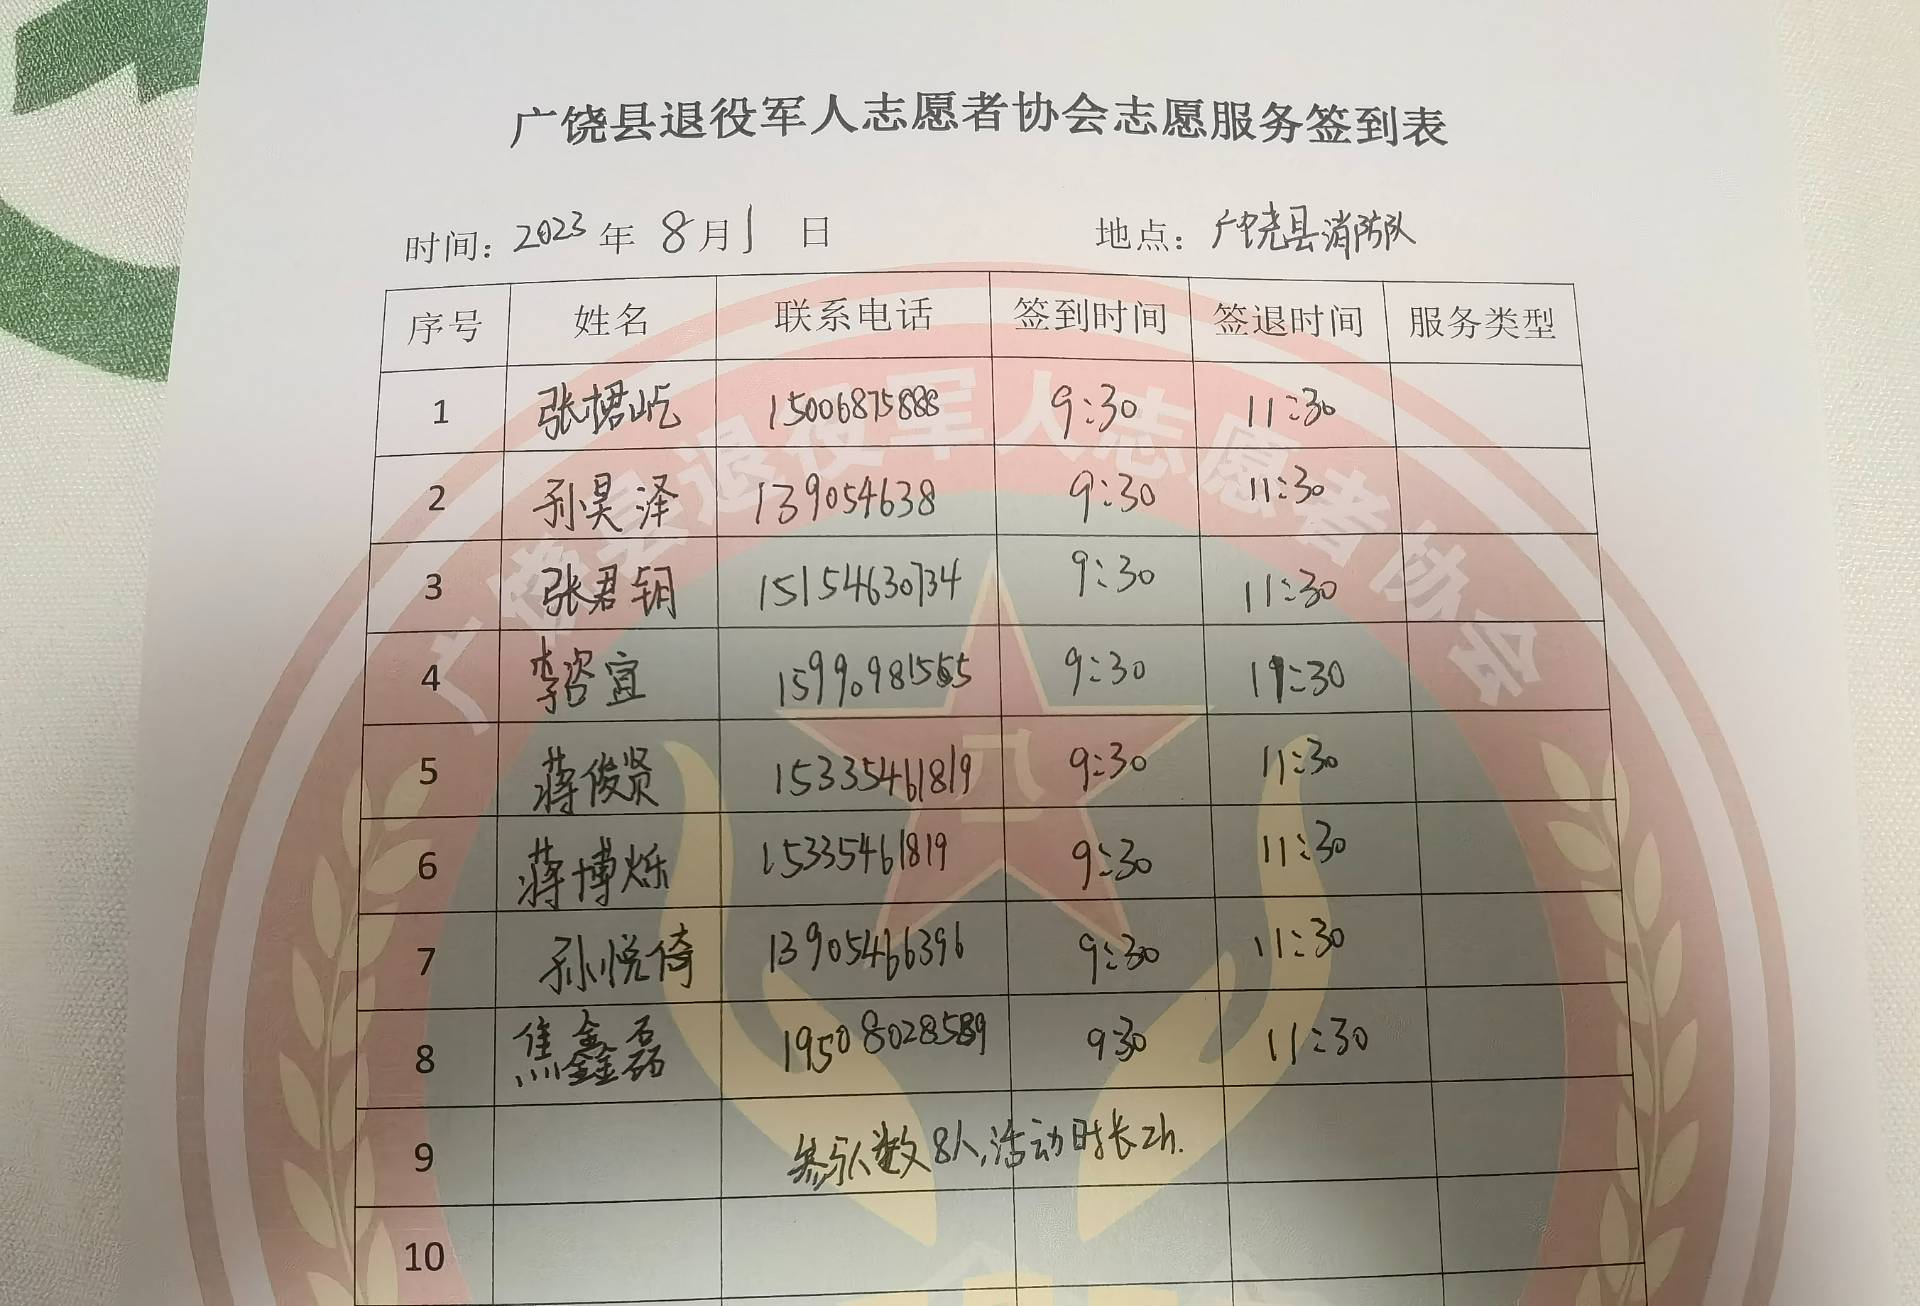 广饶县退役军人志愿者协会志愿服务签到表
时间：2023 年 8月1 日 地点：广饶县消防队
序号 姓名 联系电话 签到时间 签退时间 服务类型
1 张桾屹 15006875888 9:30 11:30
2 孙昊泽 139054638 9:30 11:30
3 张君钥 15154630734 9:30 11:30
4 李咨宜 15990981565 9:30 11:30
5 蒋俊贤 15335461819 9:30 11:30
6 蒋博烁 15335461819 9:30 11:30
7 孙悦倚 13905466396 9:30 11:30
8 焦鑫磊 19508028589 9:30 11:30
9 参与人数8人,活动时长2h.
10
广饶县退役军人志愿者协会
八一